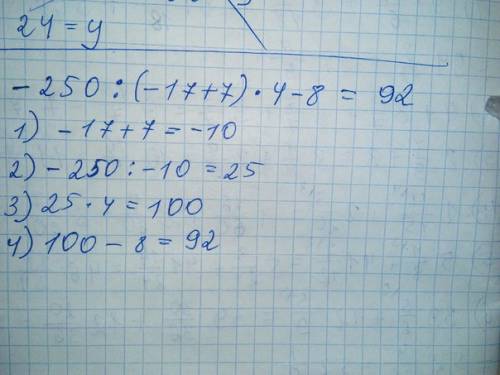 24 = y
- 250 : (-17+7) · 4 - 8 = 92
1) - 17 + 7 = -10
2) - 250 : -10 = 25
3) 25 · 4 = 100
4) 100 - 8 = 92